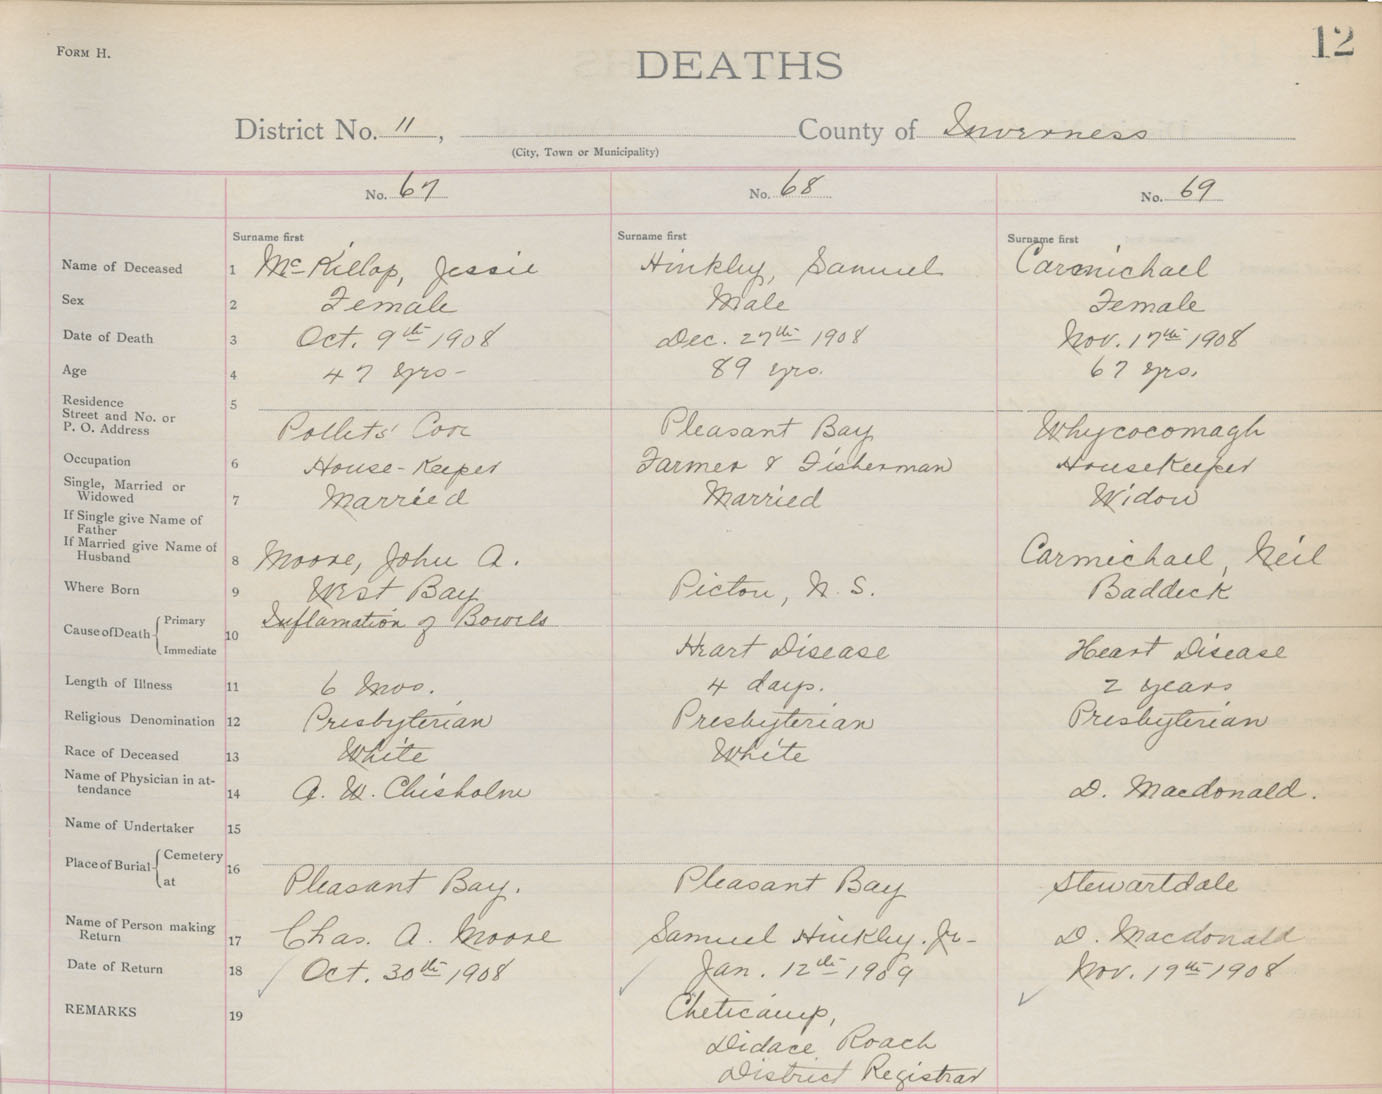 Form H.
12
DEATHS
District No. 11, County of Inverness
(City, Town or Municipality)
No. 67 No. 68 No. 69
Surname first Surname first Surname first
Name of Deceased 1 McKillop, Jessie Hinkley, Samuel Carmichael
Sex 2 Female Male Female
Date of Death 3 Oct. 9th 1908 Dec. 27th 1908 Nov. 17th 1908
Age 4 47 yrs- 89 yrs. 67 yrs.
Residence 5
Street and No. or
P. O. Address Polletts' Cove Pleasant Bay Whycocomagh
Occupation 6 House-Keeper Farmer & Fisherman Housekeeper
Single, Married or
Widowed 7 Married Married Widow
If Single give Name of
Father
If Married give Name of
Husband 8 Moore, John A. Carmichael, Neil
Where Born 9 West Bay Pictou, N. S. Baddeck
Cause of Death 10 Primary Inflamation of Bowels
Immediate Heart Disease Heart Disease
Length of Illness 11 6 Mos. 4 days. 2 years
Religious Denomination 12 Presbyterian Presbyterian Presbyterian
Race of Deceased 13 White White
Name of Physician in at-
tendance 14 A. W. Chisholm D. Macdonald.
Name of Undertaker 15
Place of Burial 16 Cemetery
at Pleasant Bay. Pleasant Bay Stewartdale
Name of Person making
Return 17 Chas. A. Moore Samuel Hinkley. Jr- D. Macdonald
Date of Return 18 Oct. 30th 1908 Jan. 12th 1909 Nov. 19th 1908
REMARKS 19 Cheticamp,
Didace Roach
District Registrar